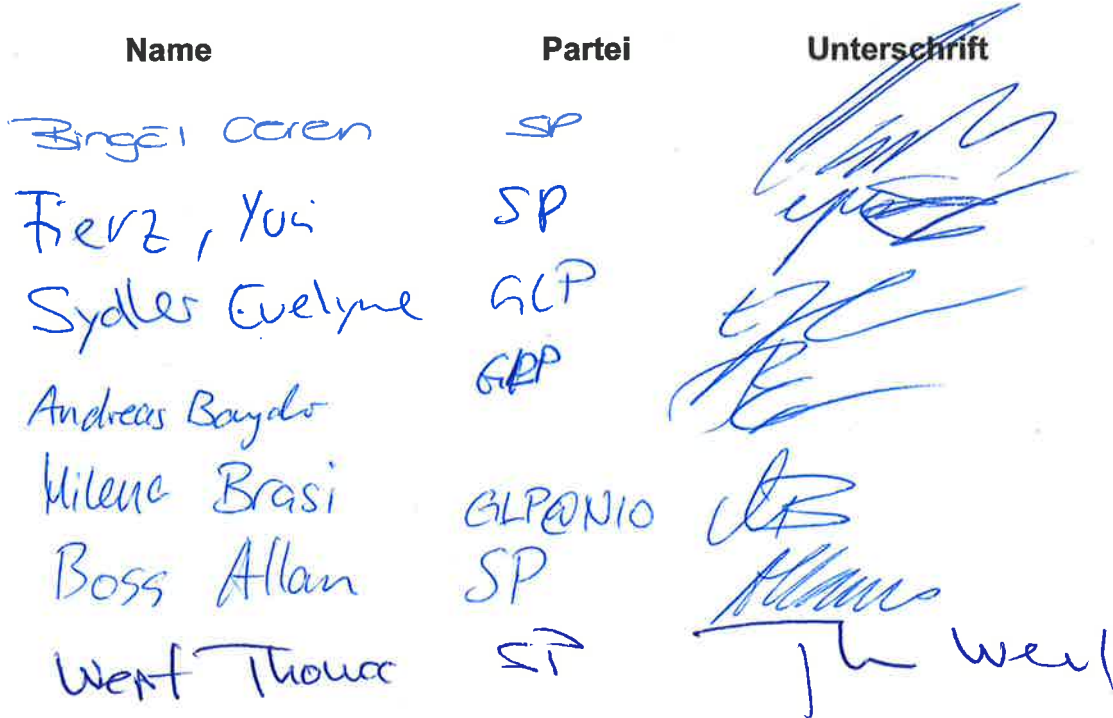 Name Partei Unterschrift
Bingöl Ceren SP
Fierz, Yuri SP
Sydler Evelyne GLP
Andreas GRP
Milena Brasi GLP@NIO
Boss Allan SP
Wenf Thomas SP